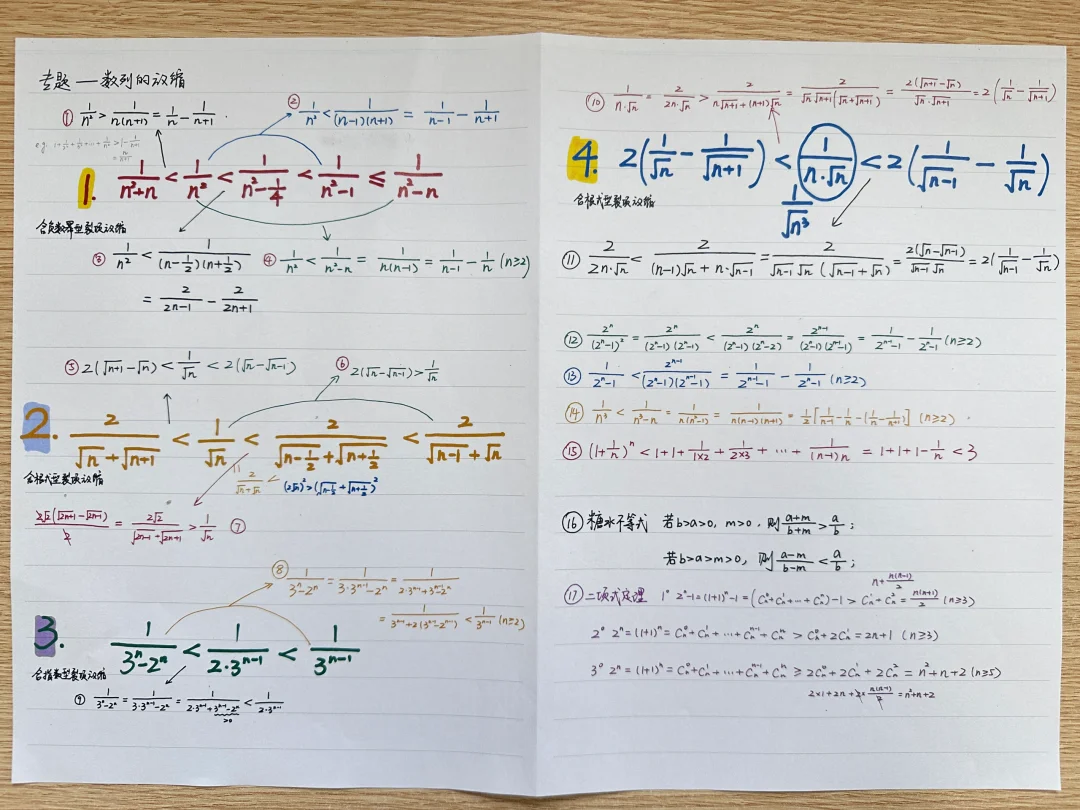 专题—数列的放缩
① 1/n² > 1/n(n+1) = 1/n − 1/(n+1).
② 1/n² < 1/(n−1)(n+1) = 1/(n−1) − 1/(n+1)
1. 1/(n²+n) < 1/n² < 1/(n²−1/4) < 1/(n²−1) ≤ 1/(n²−n)
含负数幂型裂项放缩
③ 1/n² < 1/(n−1/2)(n+1/2)
= 2/(2n−1) − 2/(2n+1)
④ 1/n² < 1/(n²−n) = 1/n(n−1) = 1/(n−1) − 1/n (n≥2)
⑤ 2(√(n+1) − √n) < 1/√n < 2(√n − √(n−1))
⑥ 2(√n − √(n−1)) > 1/√n
2. 2/(√n+√(n+1)) < 1/√n < 2/(√(n−1/2)+√(n+1/2)) < 2/(√(n−1)+√n)
含根式型裂项放缩
2/(√n+√n) < (2√n)² > (√(n−1/2)+√(n+1/2))²
2√2(√(2n+1) − √(2n−1))/2 = 2√2/(√(2n−1)+√(2n+1)) > 1/√n ⑦
⑧ 1/(3ⁿ−2ⁿ) = 1/(3·3ⁿ⁻¹−2ⁿ) = 1/(2·3ⁿ⁻¹+3ⁿ⁻¹−2ⁿ)
= 1/(3ⁿ⁻¹+2(3ⁿ⁻¹−2ⁿ⁻¹)) < 1/3ⁿ⁻¹ (n≥2)
3. 1/(3ⁿ−2ⁿ) < 1/(2·3ⁿ⁻¹) < 1/3ⁿ⁻¹
含指数型裂项放缩
⑨ 1/(3ⁿ−2ⁿ) = 1/(3·3ⁿ⁻¹−2ⁿ) = 1/(2·3ⁿ⁻¹+3ⁿ⁻¹−2ⁿ) < 1/(2·3ⁿ⁻¹)
>0
⑩ 1/(n·√n) = 2/(2n·√n) > 2/(n√(n+1)+(n+1)√n) = 2/(√n√(n+1)(√n+√(n+1))) = 2(√(n+1)−√n)/(√n·√(n+1)) = 2(1/√n − 1/√(n+1))
4. 2(1/√n − 1/√(n+1)) < 1/(n·√n) < 2(1/√(n−1) − 1/√n)
1/√n³
含根式型裂项放缩
⑪ 2/(2n·√n) < 2/((n−1)√n + n·√(n−1)) = 2/(√(n−1)√n(√(n−1)+√n)) = 2(√n−√(n−1))/(√(n−1)√n) = 2(1/√(n−1) − 1/√n)
⑫ 2ⁿ/(2ⁿ−1)² = 2ⁿ/(2ⁿ−1)(2ⁿ−1) < 2ⁿ/(2ⁿ−1)(2ⁿ−2) = 2ⁿ⁻¹/(2ⁿ−1)(2ⁿ⁻¹−1) = 1/(2ⁿ⁻¹−1) − 1/(2ⁿ−1) (n≥2)
⑬ 1/(2ⁿ−1) < 2ⁿ⁻¹/(2ⁿ−1)(2ⁿ⁻¹−1) = 1/(2ⁿ⁻¹−1) − 1/(2ⁿ−1) (n≥2)
⑭ 1/n³ < 1/(n³−n) = 1/n(n²−1) = 1/n(n−1)(n+1) = 1/2[1/(n−1) − 1/n − (1/n − 1/(n+1))] (n≥2)
⑮ (1+1/n)ⁿ < 1+1+1/(1×2)+1/(2×3)+···+1/(n−1)n = 1+1+1−1/n < 3
⑯ 糖水不等式 若b>a>0, m>0, 则(a+m)/(b+m) > a/b;
若b>a>m>0, 则(a−m)/(b−m) < a/b;
n+n(n−1)/2
⑰ 二项式定理 1° 2ⁿ−1=(1+1)ⁿ−1=(Cₙ⁰+Cₙ¹+···+Cₙⁿ)−1 > Cₙ¹+Cₙ² = n(n+1)/2 (n≥3)
2° 2ⁿ=(1+1)ⁿ=Cₙ⁰+Cₙ¹+···+Cₙⁿ⁻¹+Cₙⁿ > Cₙ⁰+2Cₙ¹ = 2n+1 (n≥3)
3° 2ⁿ=(1+1)ⁿ=Cₙ⁰+Cₙ¹+···+Cₙⁿ⁻¹+Cₙⁿ ≥ 2Cₙ⁰+2Cₙ¹+2Cₙ² = n²+n+2 (n≥5)
2×1+2n+2×n(n−1)/2 = n²+n+2